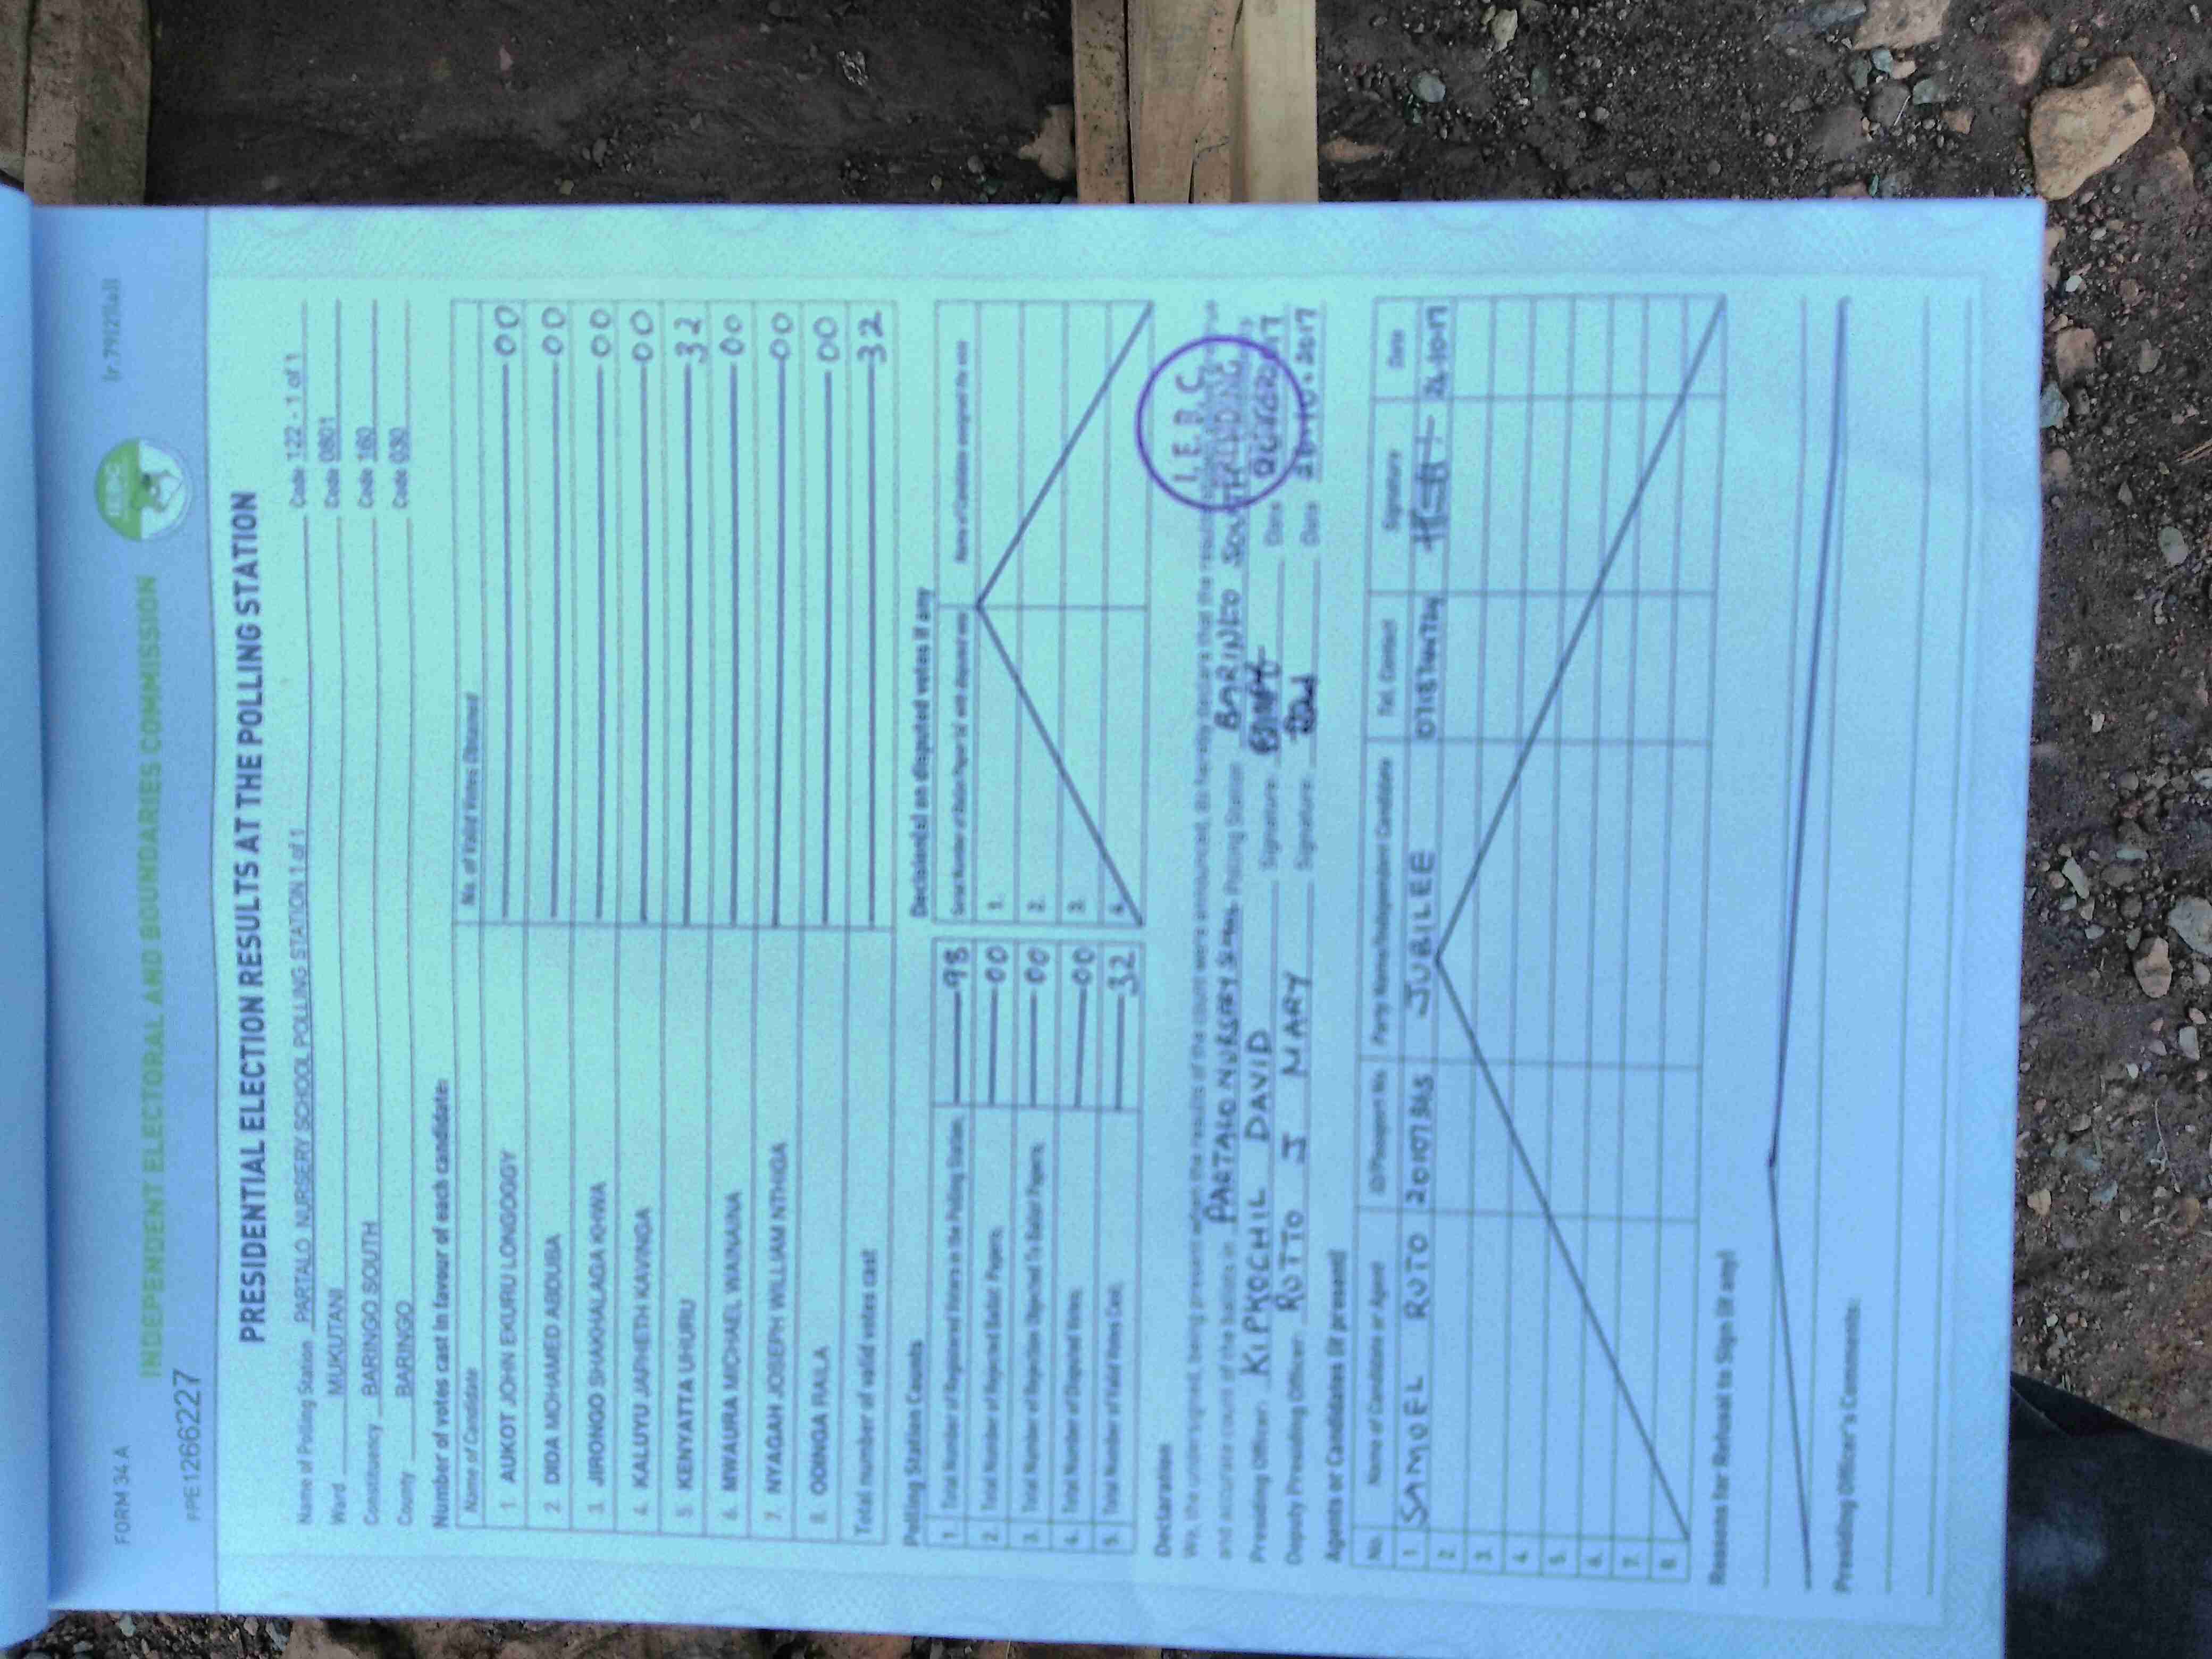 FORM 34 A
Ir.7912(all
INDEPENDENT ELECTORAL AND BOUNDARIES COMMISSION
IEBC
PPE1266227
PRESIDENTIAL ELECTION RESULTS AT THE POLLING STATION
Name of Polling Station PARTALO NURSERY SCHOOL POLLING STATION 1 of 1 Code 122 - 1 of 1
Ward MUKUTANI Code 0801
Constituency BARINGO SOUTH Code 160
County BARINGO Code 030
Number of votes cast in favour of each candidate:
Name of Candidate No. of Valid Votes Obtained
1 AUKOT JOHN EKURU LONGOGGY 00
2 DIDA MOHAMED ABDUBA 00
3 JIRONGO SHAKHALAGA KHWA 00
4. KALUYU JAPHETH KAVINGA 00
5 KENYATTA UHURU 32
6. MWAURA MICHAEL WAINAINA 00
7. NYAGAH JOSEPH WILLIAM NTHIGA 00
8. ODINGA RAILA 00
Total number of valid votes cast 32
Polling Station Counts
1 Total Number of Registered Voters in the Polling Station 98
2. Total Number of Rejected Ballot Papers 00
3. Total Number of Rejection Objected To Ballot Papers 00
4. Total Number of Disputed Votes 00
5. Total Number of Valid Votes Cast 32
Decision(s) on disputed votes if any
Serial Number of Ballot Paper (s) with disputed vote Name of Candidate assigned the vote
1.
2.
3.
4.
Declaration
We, the undersigned, being present when the results of the count were announced, do hereby declare that the results
and accurate count of the ballots in PARTALO NURSERY Polling Station BARINGO
Presiding Officer: KIPKOCHIL DAVID Signature: Date
Deputy Presiding Officer: RUTTO J MARY Signature: Date 2017
I.E.B.C
PRESIDING
OFFICER
Agents or Candidates (if present)
No. Name of Candidate or Agent ID/Passport No. Party Name/Independent Candidate Tel. Contact Signature Date
1. SAMUEL RUTO 20107365 JUBILEE
2.
3.
4.
5.
6.
7.
8.
Reasons for Refusal to Sign (if any)
Presiding Officer's Comments: